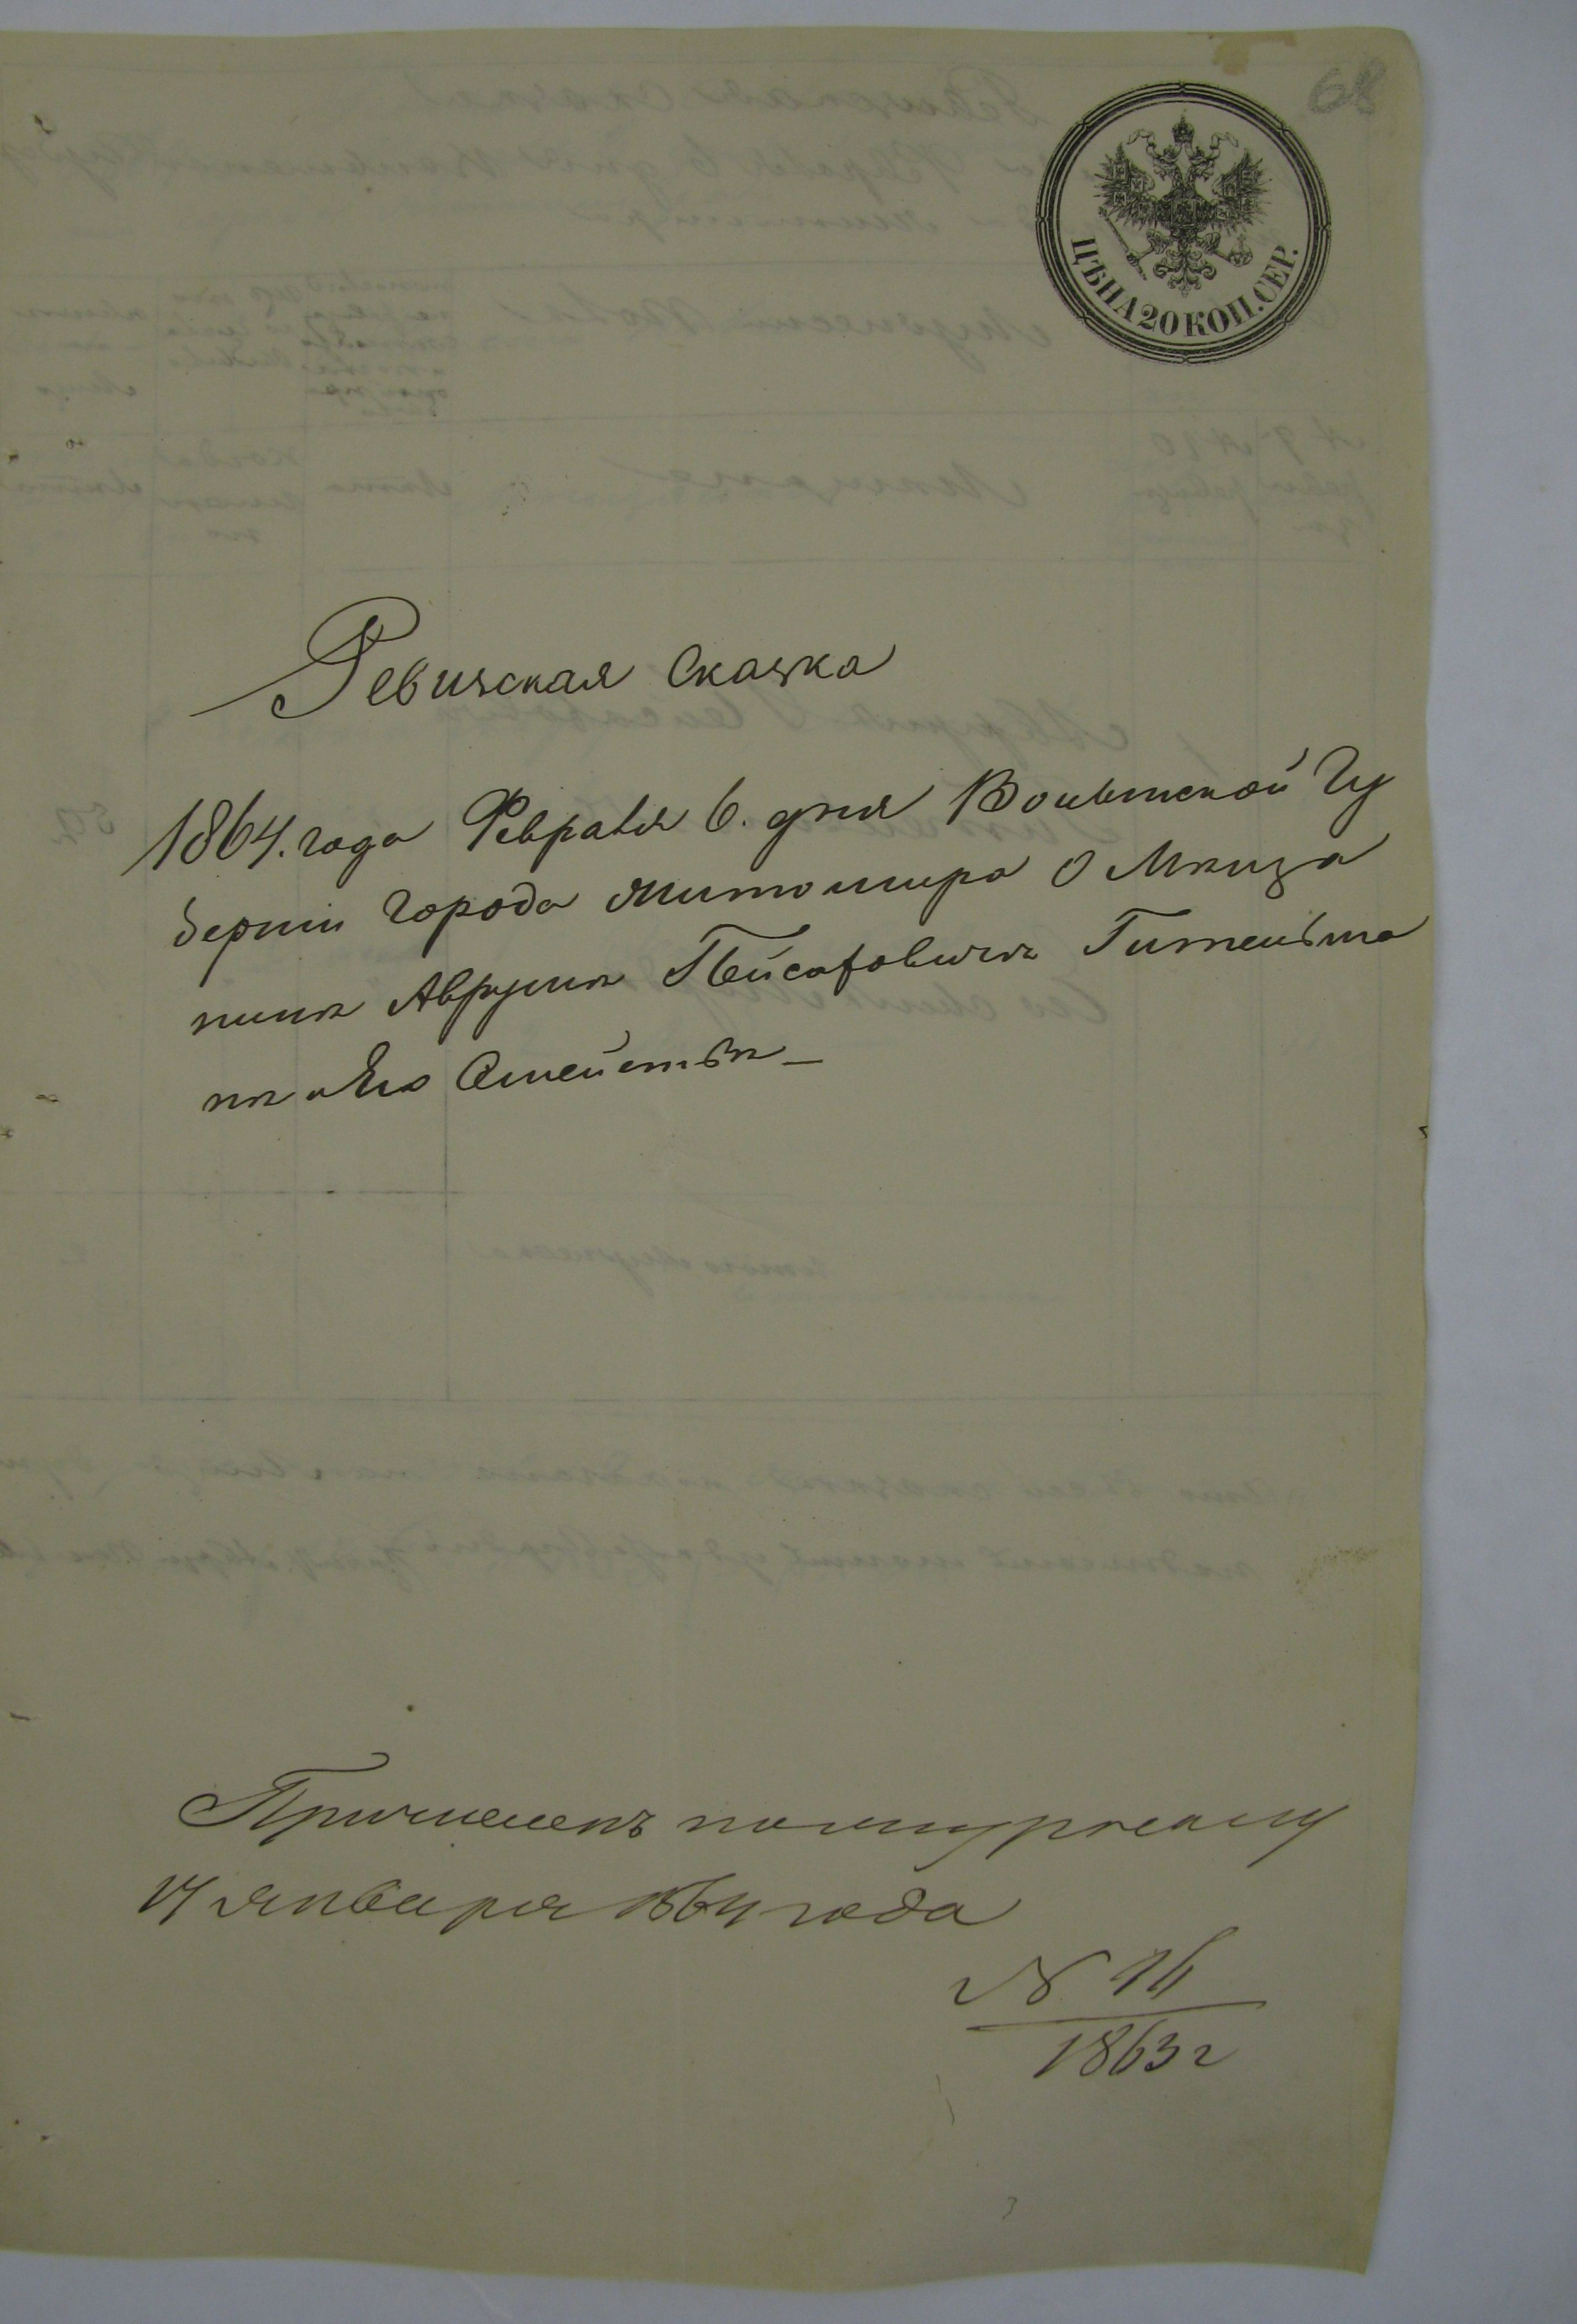 68
ЦѢНА 20 КОП. СЕР.
Ревизская Сказка
1864. года Февраля 6. дня Волынской Гу
берніи города Житомира О Мѣща
нинѣ Аврумѣ Пейсаховичѣ Гительма
нѣ и Его Семействѣ
Причисленъ
17 января 1864 года
N 16
1863 г